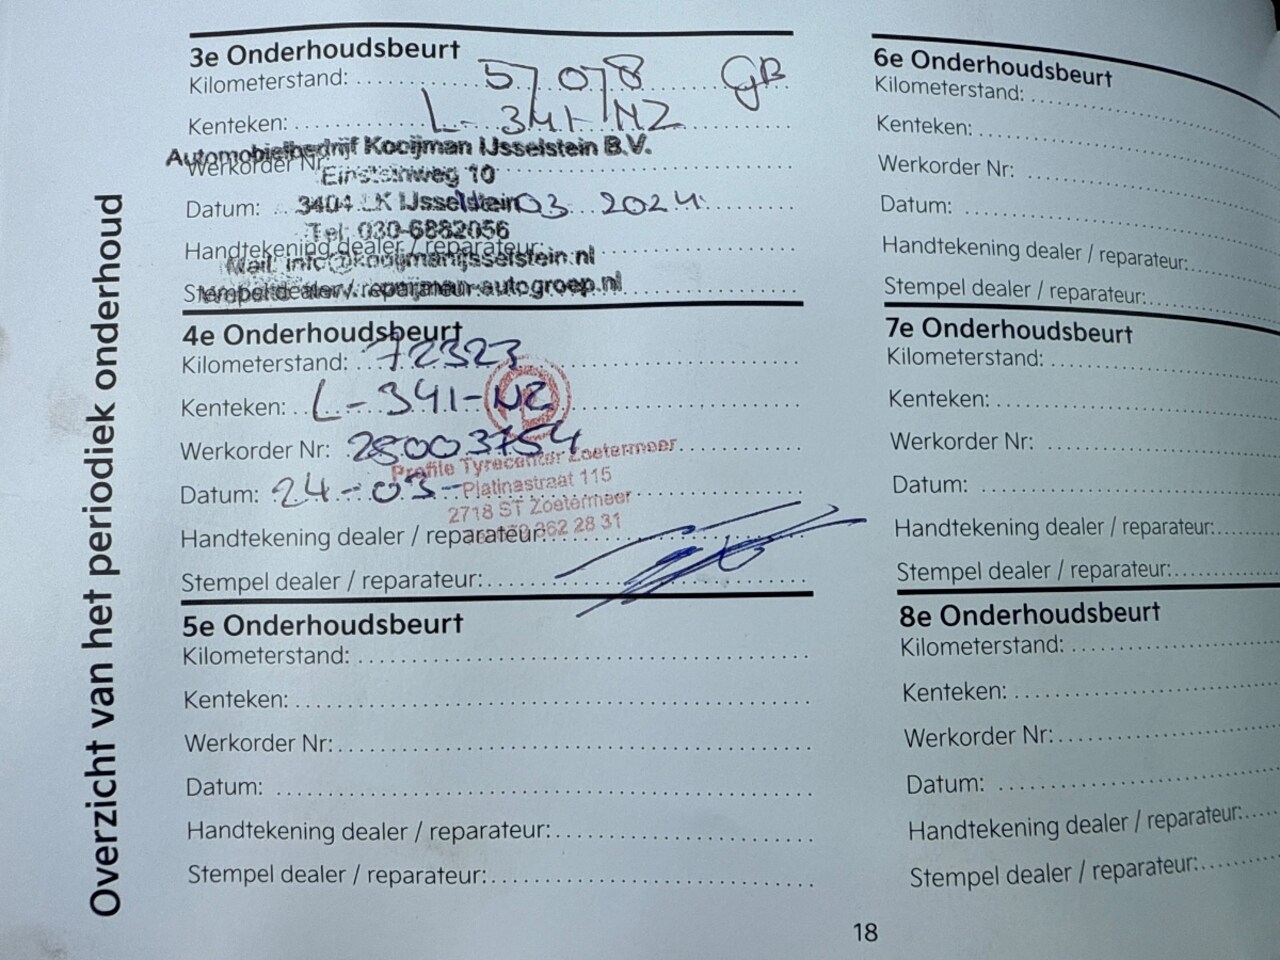 Overzicht van het periodiek onderhoud
3e Onderhoudsbeurt
Kilometerstand: 57078 GB
Kenteken: L-341-NZ
Automobielbedrijf Kooijman IJsselstein B.V.
Werkorder Nr:
Einsteinweg 10
Datum: 03 2024
3404 LK IJsselstein
Tel: 030-6882056
Handtekening dealer / reparateur:
Mail: info@kooijmanijsselstein.nl
Stempel dealer / reparateur:
4e Onderhoudsbeurt
Kilometerstand: 72323
Kenteken: L-341-NZ
Werkorder Nr: 25003754
Profile Tyrecenter Zoetermeer
Datum: 24-03-
Platinastraat 115
2718 ST Zoetermeer
Handtekening dealer / reparateur:
362 28 31
Stempel dealer / reparateur:
5e Onderhoudsbeurt
Kilometerstand:
Kenteken:
Werkorder Nr:
Datum:
Handtekening dealer / reparateur:
Stempel dealer / reparateur:
6e Onderhoudsbeurt
Kilometerstand:
Kenteken:
Werkorder Nr:
Datum:
Handtekening dealer / reparateur:
Stempel dealer / reparateur:
7e Onderhoudsbeurt
Kilometerstand:
Kenteken:
Werkorder Nr:
Datum:
Handtekening dealer / reparateur:
Stempel dealer / reparateur:
8e Onderhoudsbeurt
Kilometerstand:
Kenteken:
Werkorder Nr:
Datum:
Handtekening dealer / reparateur:
Stempel dealer / reparateur:
18